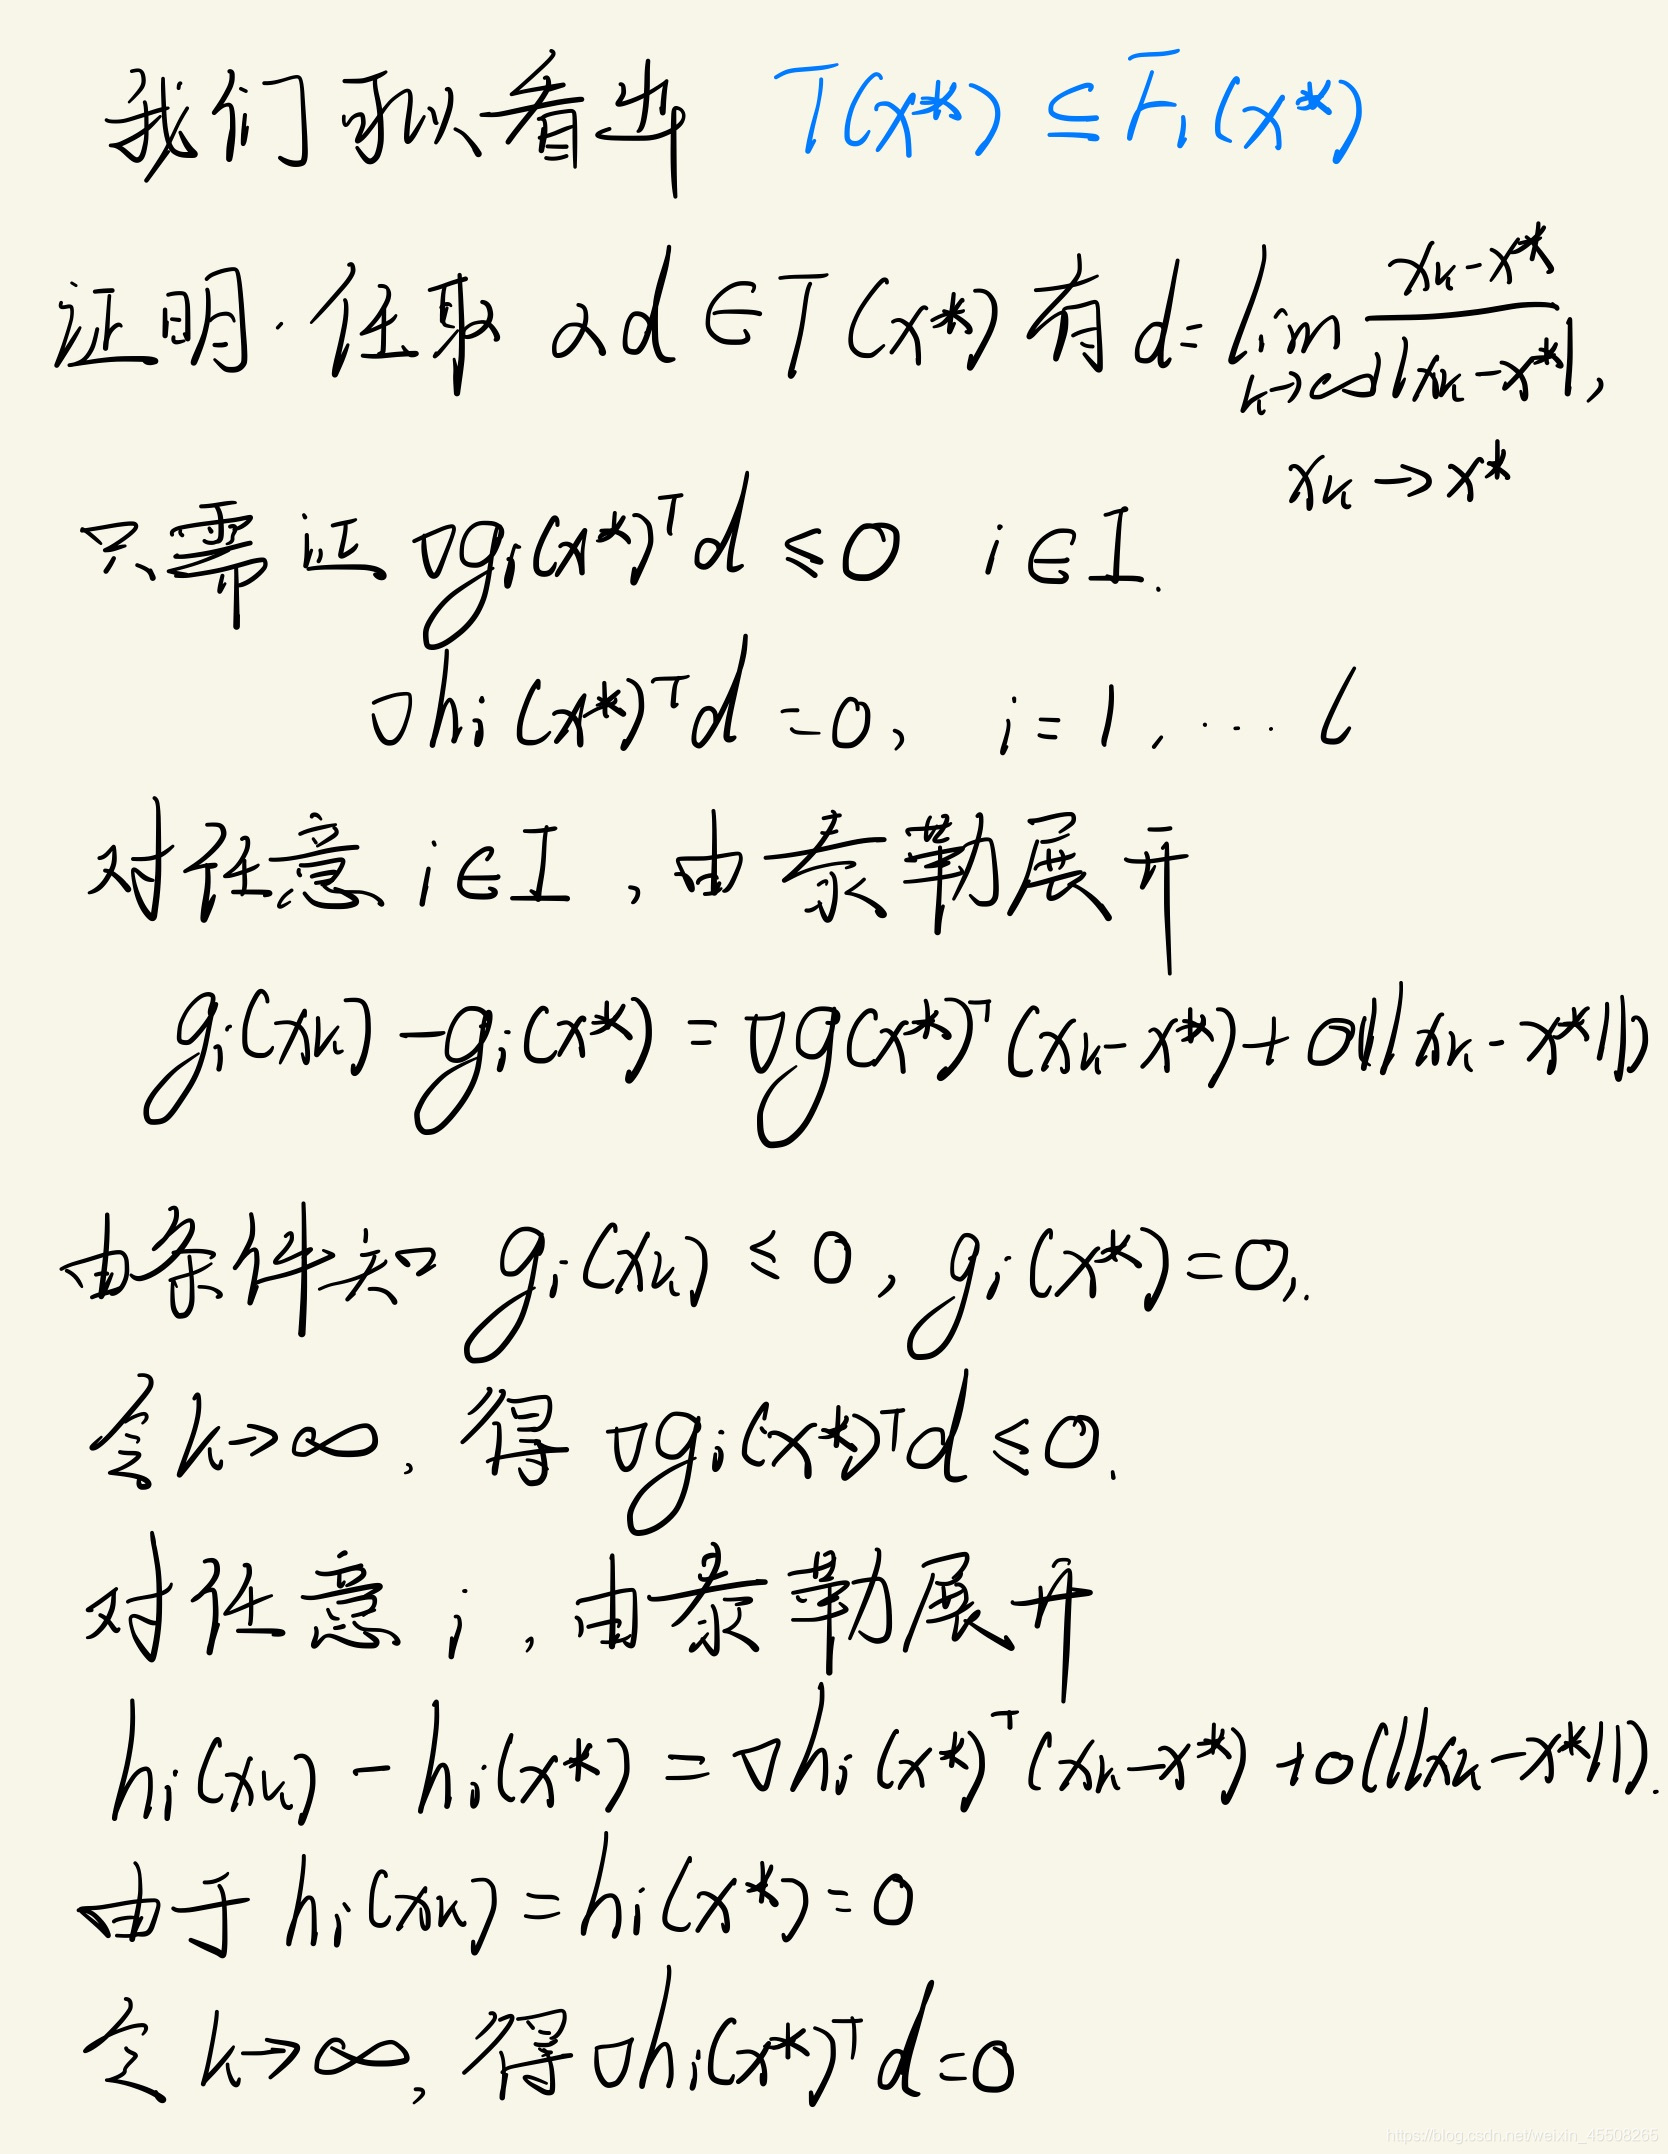 我们可以看出 T(x*) ⊆ F₁(x*)
证明. 任取 αd ∈ T(x*) 有 d = lim_{k→∞} (x_k - x*) / ||x_k - x*||,
x_k → x*
只需证 ∇g_i(x*)^T d ≤ 0 i ∈ I.
∇h_i(x*)^T d = 0, i = 1, … l
对任意 i ∈ I, 由泰勒展开
g_i(x_k) - g_i(x*) = ∇g(x*)^T (x_k - x*) + o(||x_k - x*||)
由条件知 g_i(x_k) ≤ 0, g_i(x*) = 0,.
令 k → ∞, 得 ∇g_i(x*)^T d ≤ 0.
对任意 i, 由泰勒展开
h_i(x_k) - h_i(x*) = ∇h_i(x*)^T (x_k - x*) + o(||x_k - x*||).
由于 h_i(x_k) = h_i(x*) = 0
令 k → ∞, 得 ∇h_i(x*)^T d = 0
https://blog.csdn.net/weixin_45508265